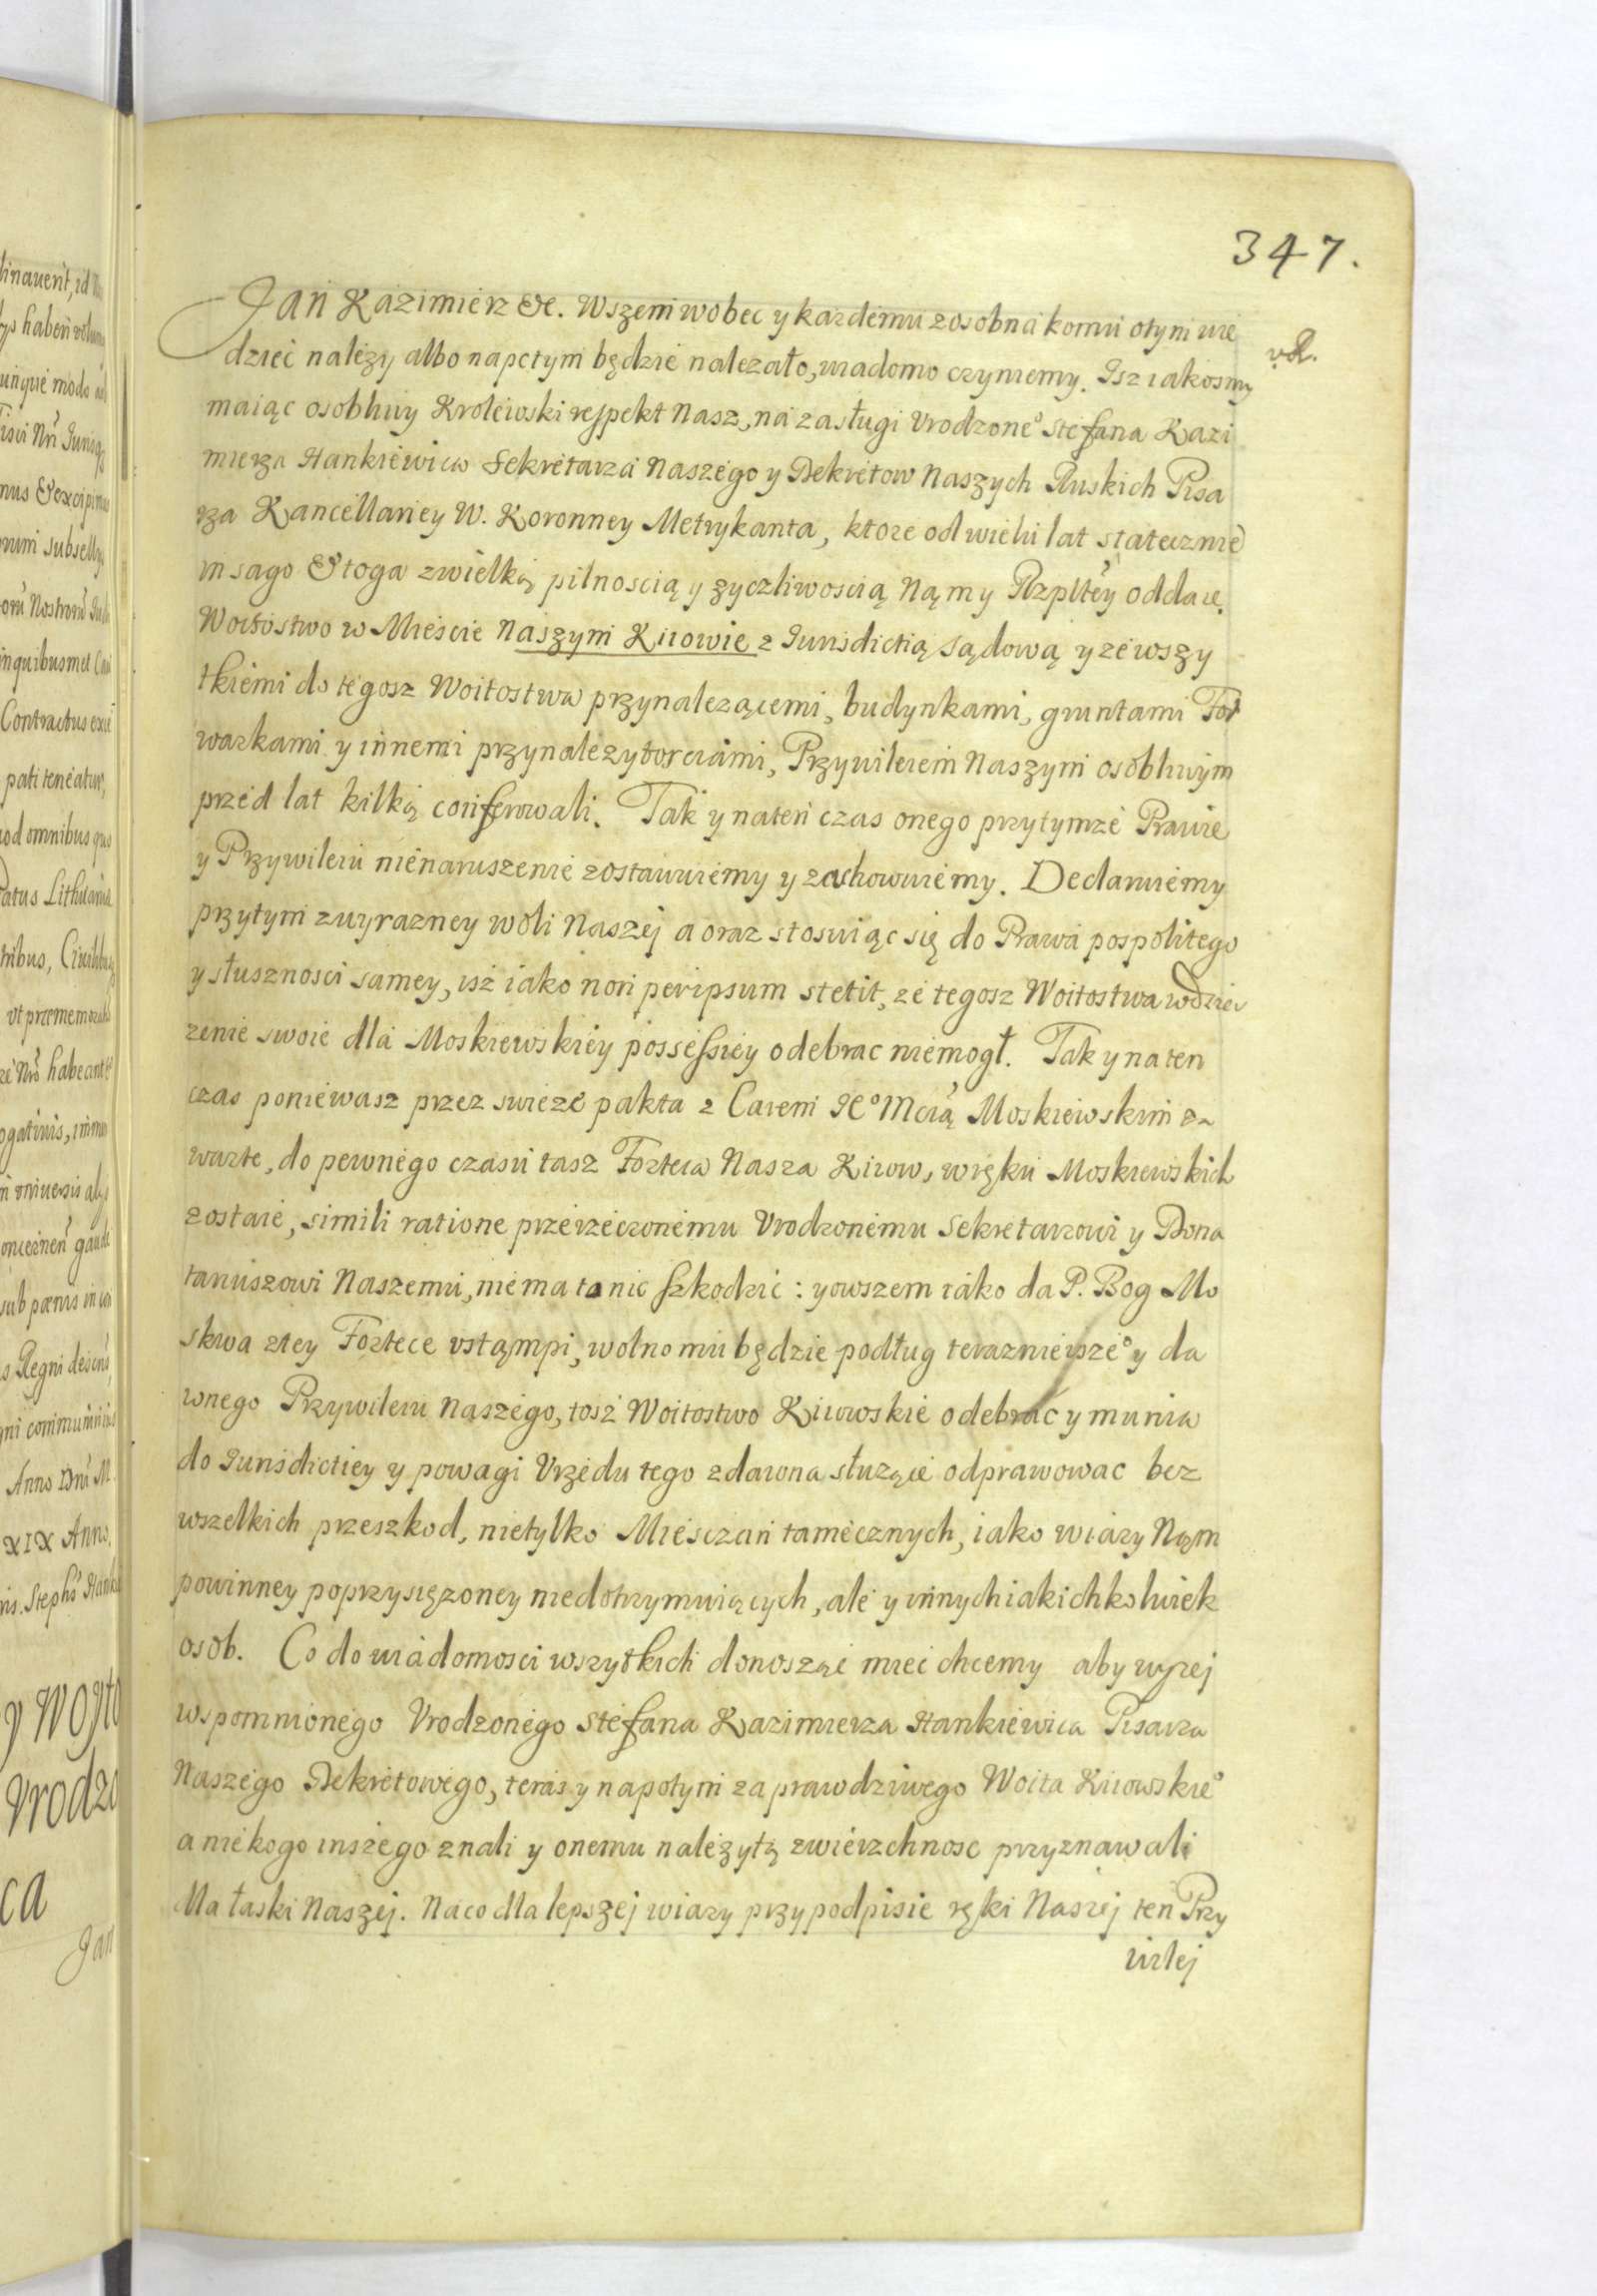 347.
Jan Kazimierz &c. Wszem wobec y kazdemu zosobna komu otym wie
dziec nalezy albo napotym będzie nalezało, wiadomo czyniemy. Isz iakosmy
maiąc osobliwy Krolewski respekt Nasz, na zasługi Vrodzone° Stefana Kazi
mierza Hankiewica Sekretarza Naszego y Dekretow Naszych Ruskich Pisa
rza Kancellariey W. Koronney Metrykanta, ktore od wielu lat statecznie
in sago & toga zwielką pilnoscią y zyczliwoscią Nąm y Rzpltey oddaie.
Woitostwo w Miescie Naszym Kiiowie z Jurisdictią sądową y ze wszy
tkiemi do tegosz Woitostwa przynalezącemi, budynkami, gruntami For
warkami y innemi przynalezytosciami, Przywileiem Naszym osobliwym
przed lat kilką conferowali. Tak y naten czas onego przytymze Prawie
y Przywileiu nienaruszenie zostawuiemy y zachowuiemy. Declaruiemy
przytym zwyrazney woli Naszej a oraz stosuiąc się do Prawa pospolitego
y słusznosci samey, isz iako non per ipsum stetit, ze tegosz Woitostwa wdzier
zenie swoie dla Moskiewskiey possessiey odebrac niemogł. Tak y na ten
czas poniewasz przez swieze pakta z Carem Je° Mcią Moskiewskim za
warte, do pewnego czasu tasz Forteca Nasza Kiiow, w ręku Moskiewskich
zostaie, simili ratione przerzeczonemu Vrodzonemu Sekretarzowi y Dona
tariuszowi Naszemu, niema to nic szkodzic: y owszem iako da P. Bog Mo
skwa ztey Fortece vstąmpi, wolno mu będzie podług terazniejsze° y da
wnego Przywileiu Naszego, tosz Woitostwo Kiiowskie odebrac y munia
do Jurisdictiey y powagi Vrzedu tego zdawna słuzące odprawowac bez
wszelkich przeszkod, nietylko Miesczan tamecznych, iako wiary Nąm
powinney poprzysięzoney niedotrzymuiących, ale y innych iakichkolwiek
osob. Co do wiadomosci wszytkich donosząc miec chcemy aby wyzej
wspomnionego Vrodzonego Stefana Kazimierza Hankiewica Pisarza
Naszego Dekretowego, teras y napotym za prawdziwego Woita Kiiowskie°
a niekogo inszego znali y onemu nalezytą zwierzchnosc przyznawali
dla łaski Naszej. Naco dla lepszej wiary przy podpisie ręki Naszej ten Przy
wilej